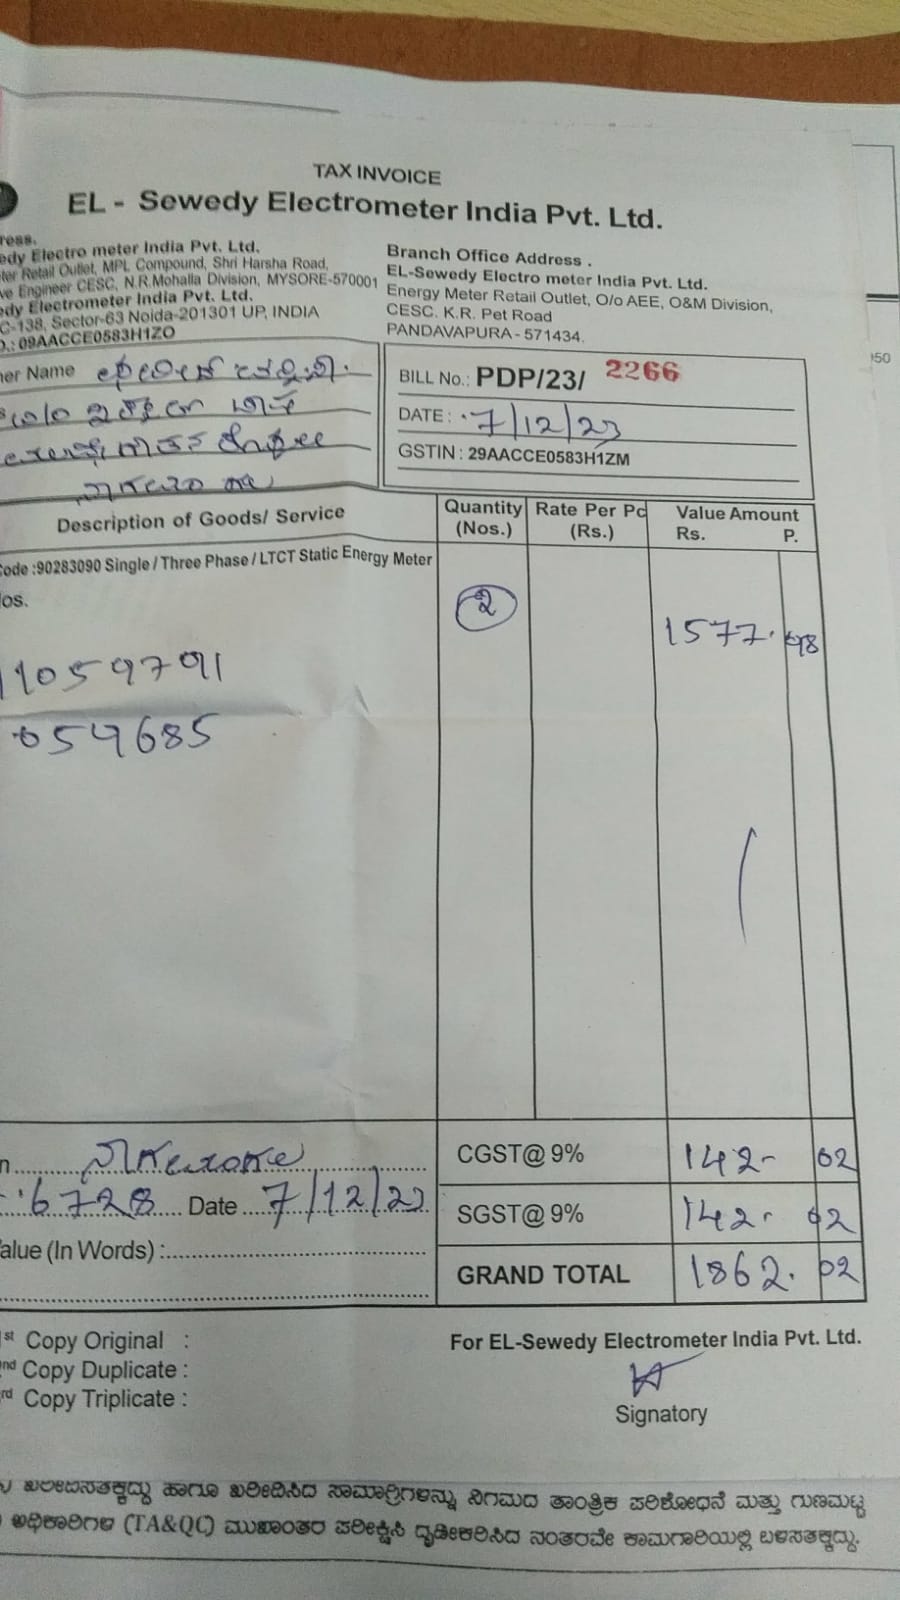 TAX INVOICE
EL - Sewedy Electrometer India Pvt. Ltd.
ress.
edy Electro meter India Pvt. Ltd.
ter Retail Outlet, MPL Compound, Shri Harsha Road,
ve Engineer CESC, N.R.Mohalla Division, MYSORE-570001
edy Electrometer India Pvt. Ltd.
C-138, Sector-63 Noida-201301 UP, INDIA
O.: 09AACCE0583H1ZO
Branch Office Address .
EL-Sewedy Electro meter India Pvt. Ltd.
Energy Meter Retail Outlet, O/o AEE, O&M Division,
CESC. K.R. Pet Road
PANDAVAPURA - 571434.
er Name
BILL No.: PDP/23/ 2266
DATE : 7/12/23
GSTIN : 29AACCE0583H1ZM
Description of Goods/ Service Quantity (Nos.) Rate Per Pc (Rs.) Value Amount Rs. P.
Code :90283090 Single / Three Phase / LTCT Static Energy Meter
os.
2 1577. 98
11059791
059685
CGST@ 9% 142- 02
6728 Date 7/12/23
SGST@ 9% 142. 02
alue (In Words) :
GRAND TOTAL 1862. 02
1st Copy Original :
nd Copy Duplicate :
rd Copy Triplicate :
For EL-Sewedy Electrometer India Pvt. Ltd.
Signatory
ಖರೀದಿಸತಕ್ಕದ್ದು ಹಾಗೂ ಖರೀದಿಸಿದ ಸಾಮಾಗ್ರಿಗಳನ್ನು ನಿಗಮದ ತಾಂತ್ರಿಕ ಪರಿಶೋಧನೆ ಮತ್ತು ಗುಣಮಟ್ಟ
ಅಧಿಕಾರಿಗಳ (TA&QC) ಮುಖಾಂತರ ಪರೀಕ್ಷಿಸಿ ದೃಢೀಕರಿಸಿದ ನಂತರವೇ ಕಾಮಗಾರಿಯಲ್ಲಿ ಬಳಸತಕ್ಕದ್ದು.